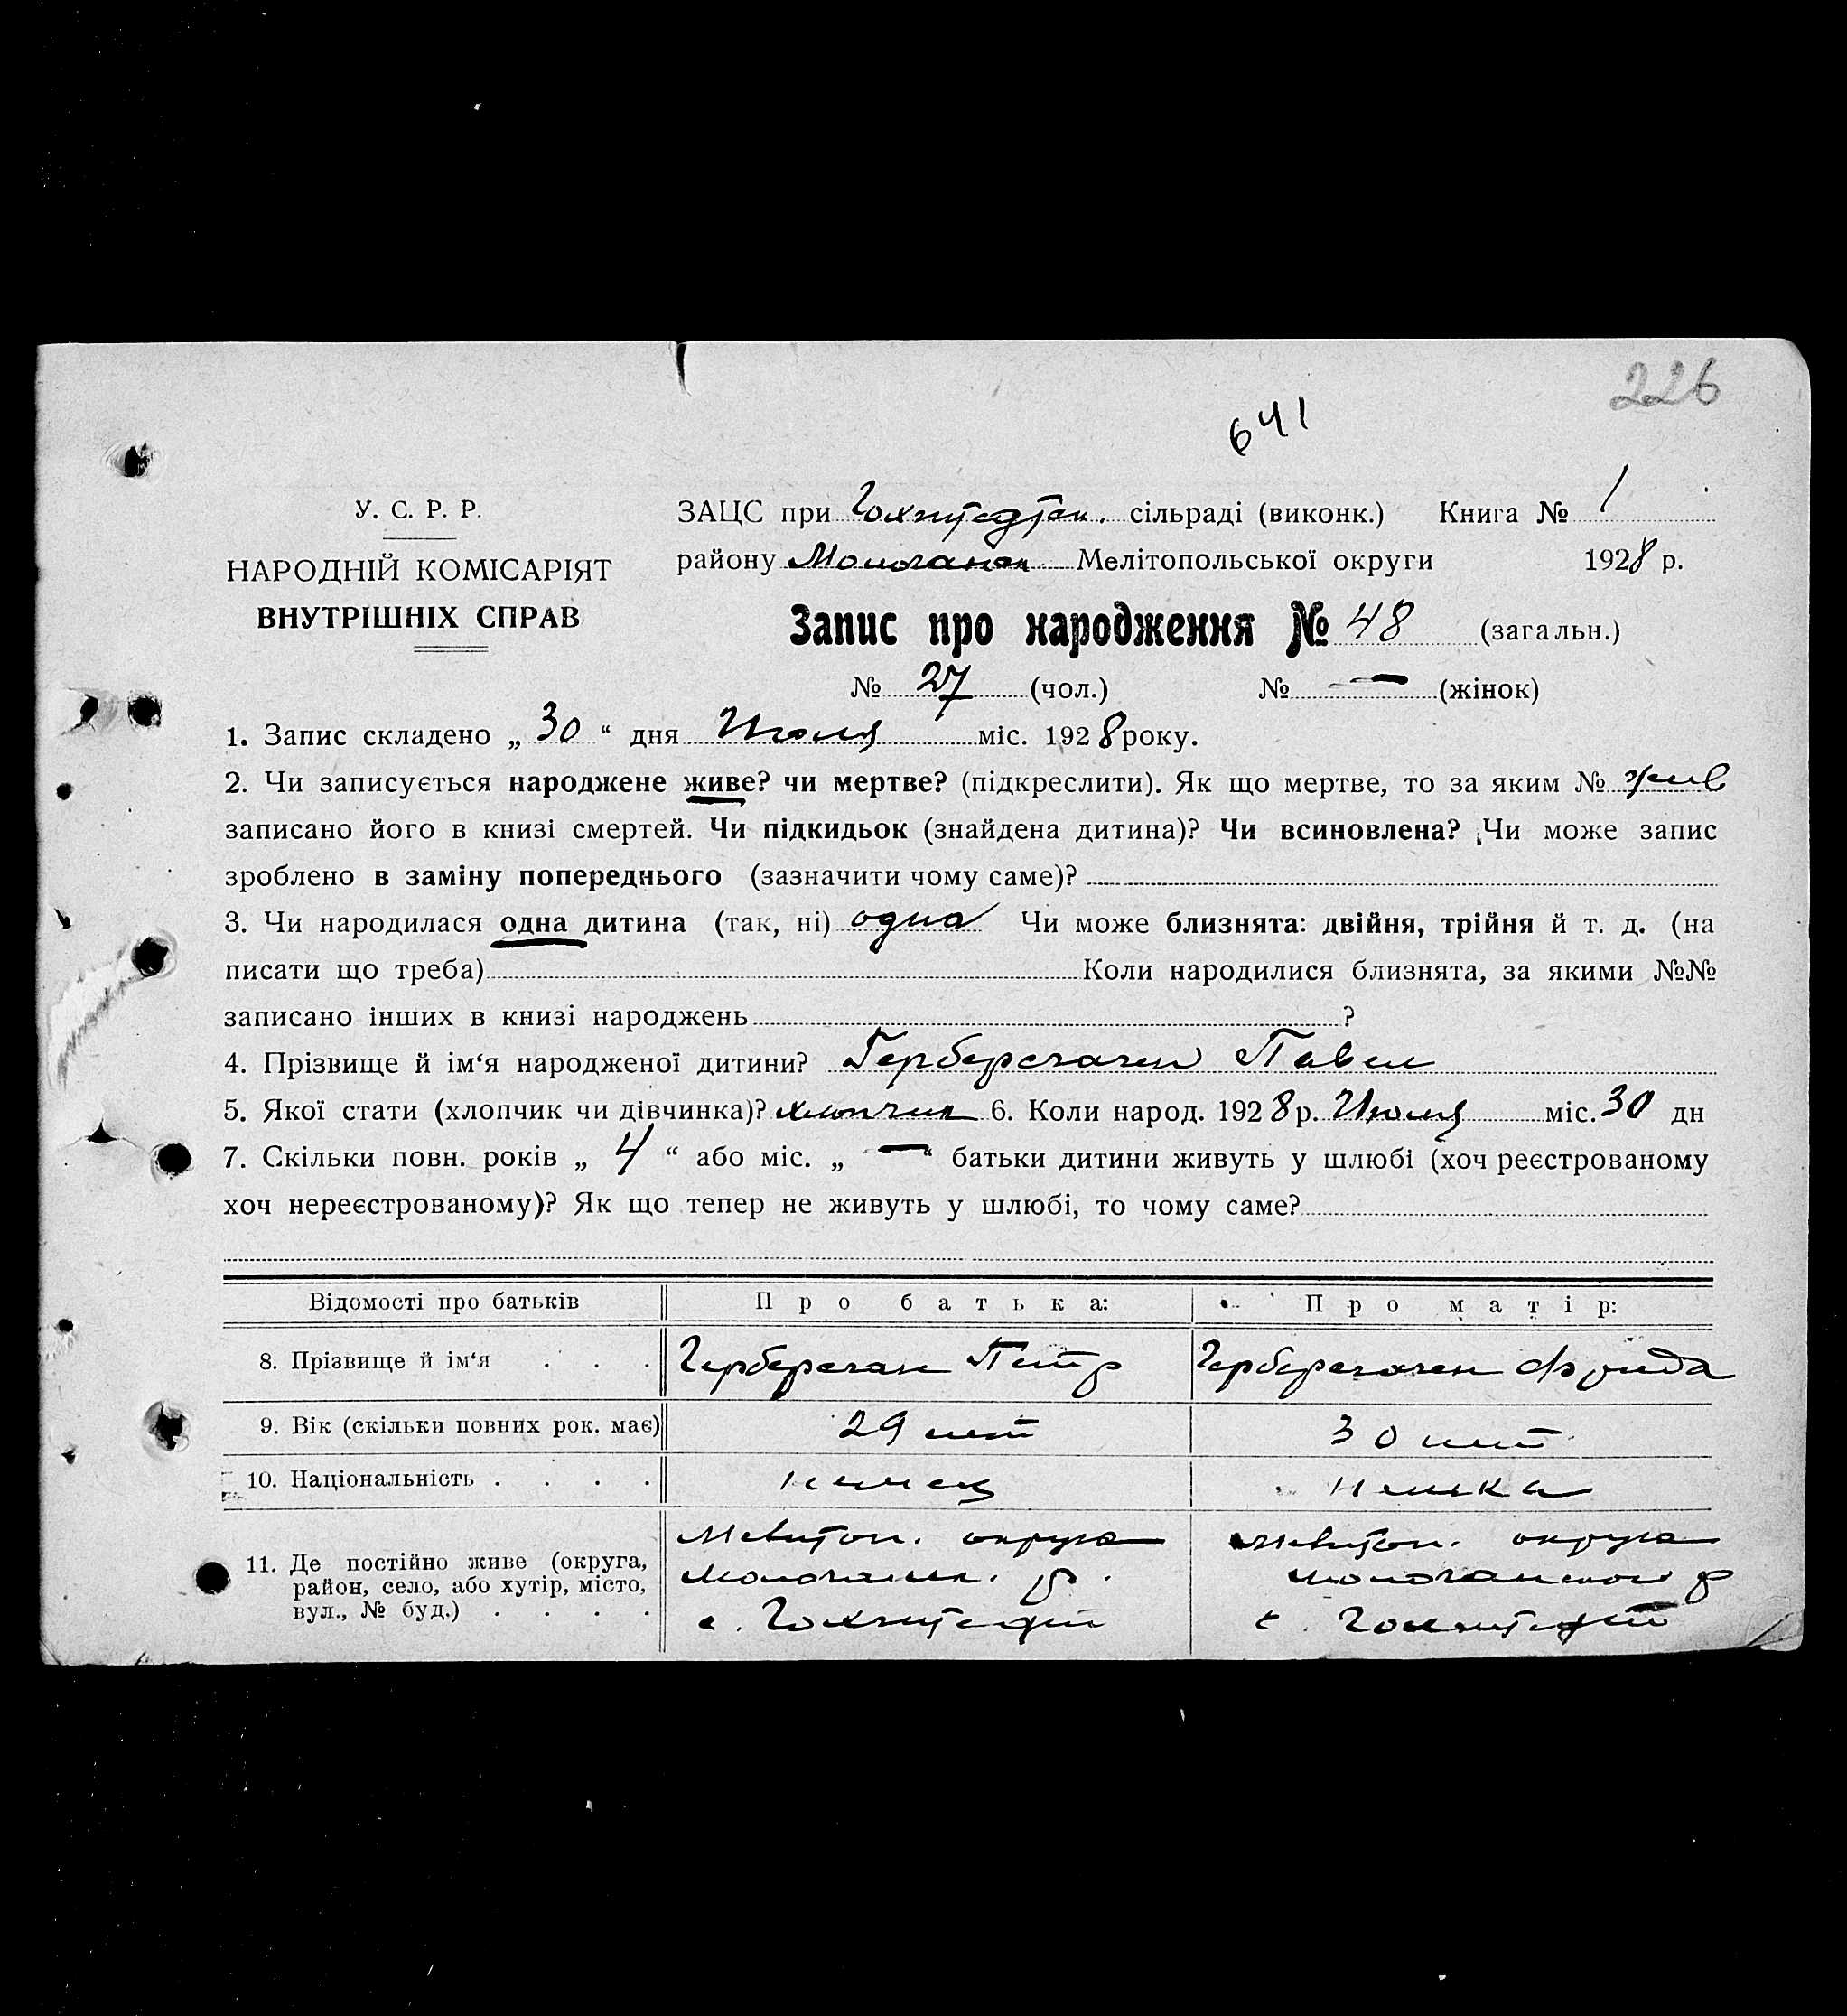 226
641
У. С. Р. Р.
НАРОДНІЙ КОМІСАРІЯТ
ВНУТРІШНІХ СПРАВ
ЗАЦС при Гохштедтск. сільраді (виконк.) Книга № 1
району Молочанск Мелітопольської округи 1928 р.
Запис про народження № 48 (загальн.)
№ 27 (чол.) № — (жінок)
1. Запис складено „ 30 “ дня Июля міс. 1928 року.
2. Чи записується народжене живе? чи мертве? (підкреслити). Як що мертве, то за яким № жив
записано його в книзі смертей. Чи підкидьок (знайдена дитина)? Чи всиновлена? Чи може запис
зроблено в заміну попереднього (зазначити чому саме)?
3. Чи народилася одна дитина (так, ні) одна Чи може близнята: двійня, трійня й т. д. (на
писати що треба) Коли народилися близнята, за якими №№
записано інших в книзі народжень ?
4. Прізвище й ім‘я народженої дитини? Павел
5. Якої стати (хлопчик чи дівчинка)? хлопчик 6. Коли народ. 1928 р. Июля міс. 30 дн
7. Скільки повн. років „ 4 “ або міс. „ — “ батьки дитини живуть у шлюбі (хоч реєстрованому
хоч нереєстрованому)? Як що тепер не живуть у шлюбі, то чому саме?
Відомості про батьків Про батька: Про матір:
8. Прізвище й ім‘я . . . Петр Фрида
9. Вік (скільки повних рок. має) 29 лет 30 лет
10. Національність . . . . немец немка
11. Де постійно живе (округа,
район, село, або хутір, місто,
вул., № буд.) . . . .
Мелитоп. округа
Молочанск. р.
с. Гохштедт
Мелитоп. округа
Молочанского р
с. Гохштедт